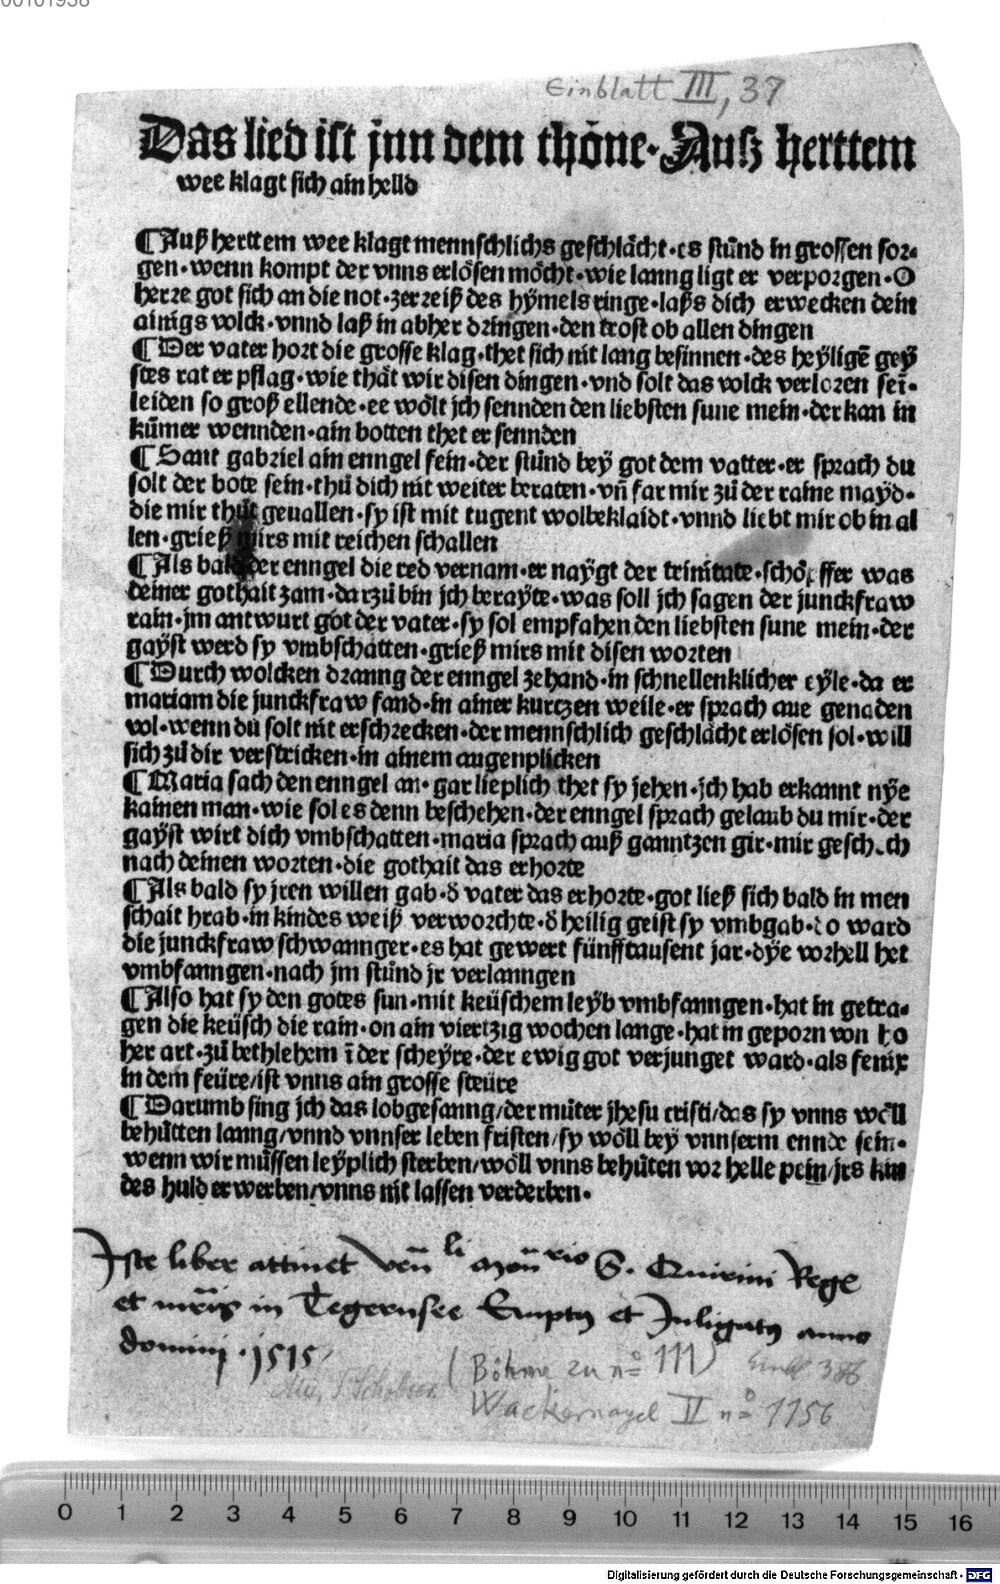 00101938
Einblatt III, 37
Das lied ist jnn dem thöne·Auß herttem
wee klagt sich ain helld
¶Auß herttem wee klagt mennschlichs geschlächt·es stůnd in grossen sor⸗
gen·wenn kompt der vnns erlösen möcht·wie lanng ligt er verporgen·O
herre got sich an die not·zerreiß des hymels ringe·laßs dich erwecken dein
ainigs wolck·vnnd laß in abher dringen·den trost ob allen dingen
¶Der vater hort die grosse klag·thet sich nit lang besinnen·des heyligē geÿ
stes rat er pflag·wie thät wir disen dingen·vnd solt das volck verloren sein·
leiden so groß ellende·ee wölt jch sennden den liebsten sune mein·der kan in
kūmer wennden·ain botten thet er sennden
¶Sant gabriel ain enngel fein·der stůnd beÿ got dem vatter·er sprach du
solt der bote sein·thů dich nit weiter beraten·vñ far mir zů der raine maÿd·
die mir thůt geuallen·sy ist mit tugent wolbeklaidt·vnnd liebt mir ob in al
len·grieß mirs mit reichen schallen
¶Als bald der enngel die red vernam·er naÿgt der trinitate·schöpffer was
deiner gothait zam·darzů bin jch beraÿte·was soll jch sagen der junckfraw
rain·jm antwurt got der vater·sy sol empfahen den liebsten sune mein·der
gaÿst werd sy vmbschatten·grieß mirs mit disen worten
¶Durch wolcken dranng der enngel zehand·in schnellenklicher eÿle·da er
mariam die junckfraw fand·in ainer kurtzen weile·er sprach aue genaden
vol·wenn du solt nit erschrecken·der mennschlich geschlächt erlösen sol·will
sich zů dir verstricken·in ainem augenplicken
¶Maria sach den enngel an·gar lieplich thet sy jehen·jch hab erkannt nÿe
kainen man·wie sol es denn beschehen·der enngel sprach gelaub du mir·der
gaÿst wirt dich vmbschatten·maria sprach auß ganntzen gir·mir gesch ch
nach deinen worten·die gothait das erhorte
¶Als bald sy jren willen gab·d̄ vater das erhorte·got ließ sich bald in men
schait hrab·in kindes weiß verworchte·d̄ heilig geist sy vmbgab·do ward
die junckfraw schwannger·es hat gewert fünfftausent jar·dÿe vorhell het
vmbfanngen·nach jm stůnd jr verlanngen
¶Also hat sy den gotes sun·mit keüschem leÿb vmbfanngen·hat in getra⸗
gen die keüsch die rain·on ain viertzig wochen lange·hat in geporn von ho
her art·zů bethlehem ī der scheÿre·der ewig got verjunget ward·als fenix
in dem feüre/ist vnns ain grosse steüre
¶Darumb sing jch das lobgesanng/der můter jhesu cristi/das sy vnns wöll
behůtten lanng/vnnd vnnser leben fristen/sy wöll beÿ vnnserm ennde sein·
wenn wir müssen leÿplich sterben/wöll vnns behüten vor helle pein/jrs kin
des huld erwerben/vnns nit lassen verderben·
Iste liber attinet venli monrio S. Quirini Rege
et mris in Tegernsee Emptus et Inligatus anno
domini · 1515
(Böhme zu no 111) Einbl 386
Wackernagel II no 1156
0 1 2 3 4 5 6 7 8 9 10 11 12 13 14 15 16
Digitalisierung gefördert durch die Deutsche Forschungsgemeinschaft - DFG